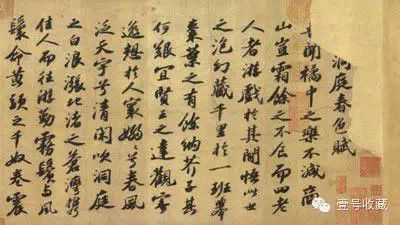 洞庭春色賦
聞橘中之樂不減商
山豈霜餘之不食而四老
人者游戲於其間悟此世
之泡幻藏千里於一班舉
棗葉之有餘納芥子其
何艱宜賢王之達觀寄
逸想於人寰嫋嫋兮春風
泛天宇兮清閑吹洞庭
之白浪漲北渚之蒼灣攜
佳人而往游勤霧鬢與風
鬟命黃頭之千奴卷震
壹号收藏